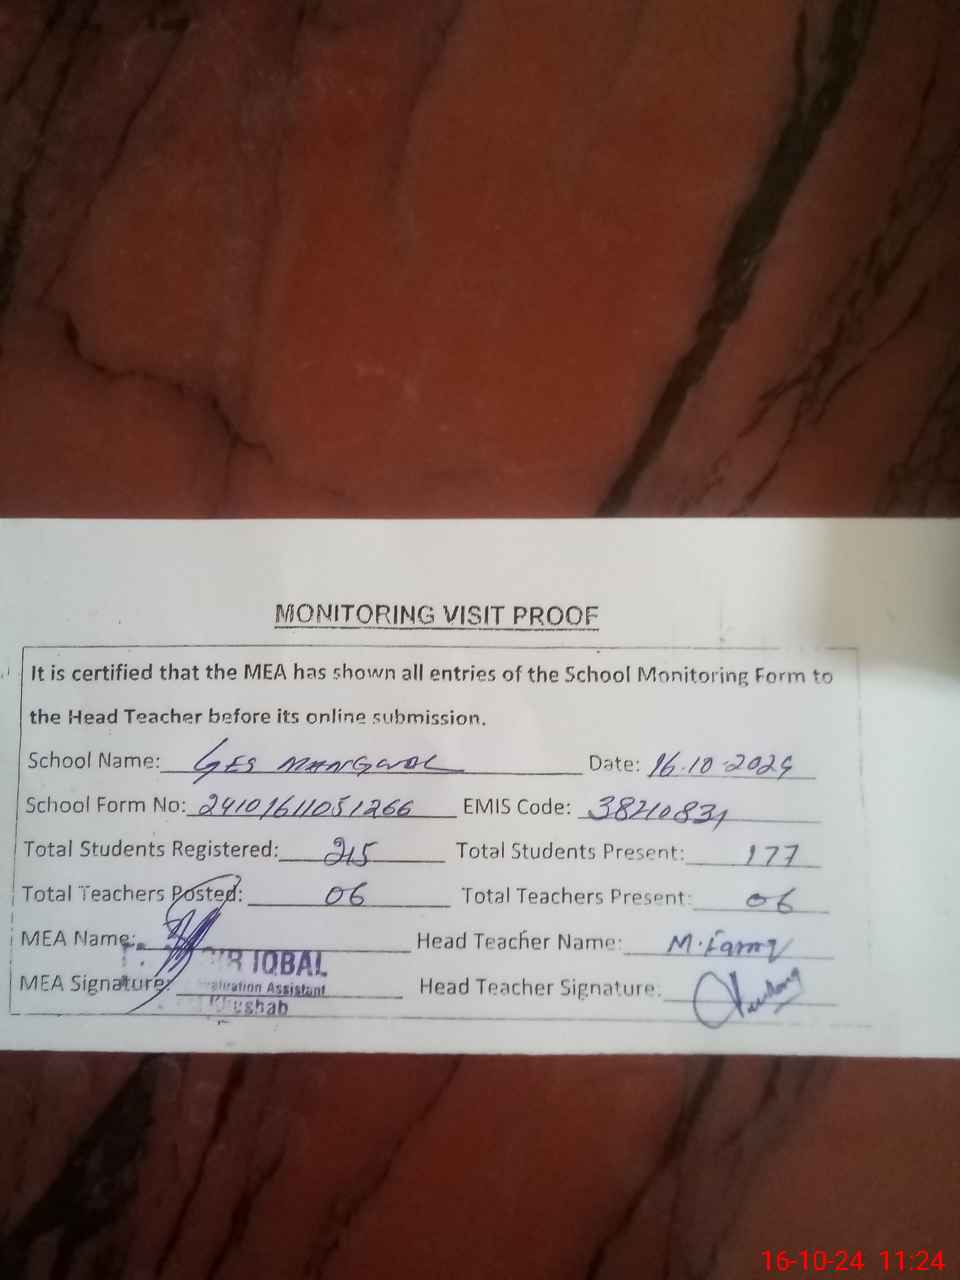 MONITORING VISIT PROOF
It is certified that the MEA has shown all entries of the School Monitoring Form to
the Head Teacher before its online submission.
School Name: GES Date: 16-10-2024
School Form No: 24101611051266 EMIS Code: 38210831
Total Students Registered: 215 Total Students Present: 177
Total Teachers Posted: 06 Total Teachers Present: 06
MEA Name: Head Teacher Name: M.
IQBAL
MEA Signature: Assistant Head Teacher Signature:
16-10-24 11:24